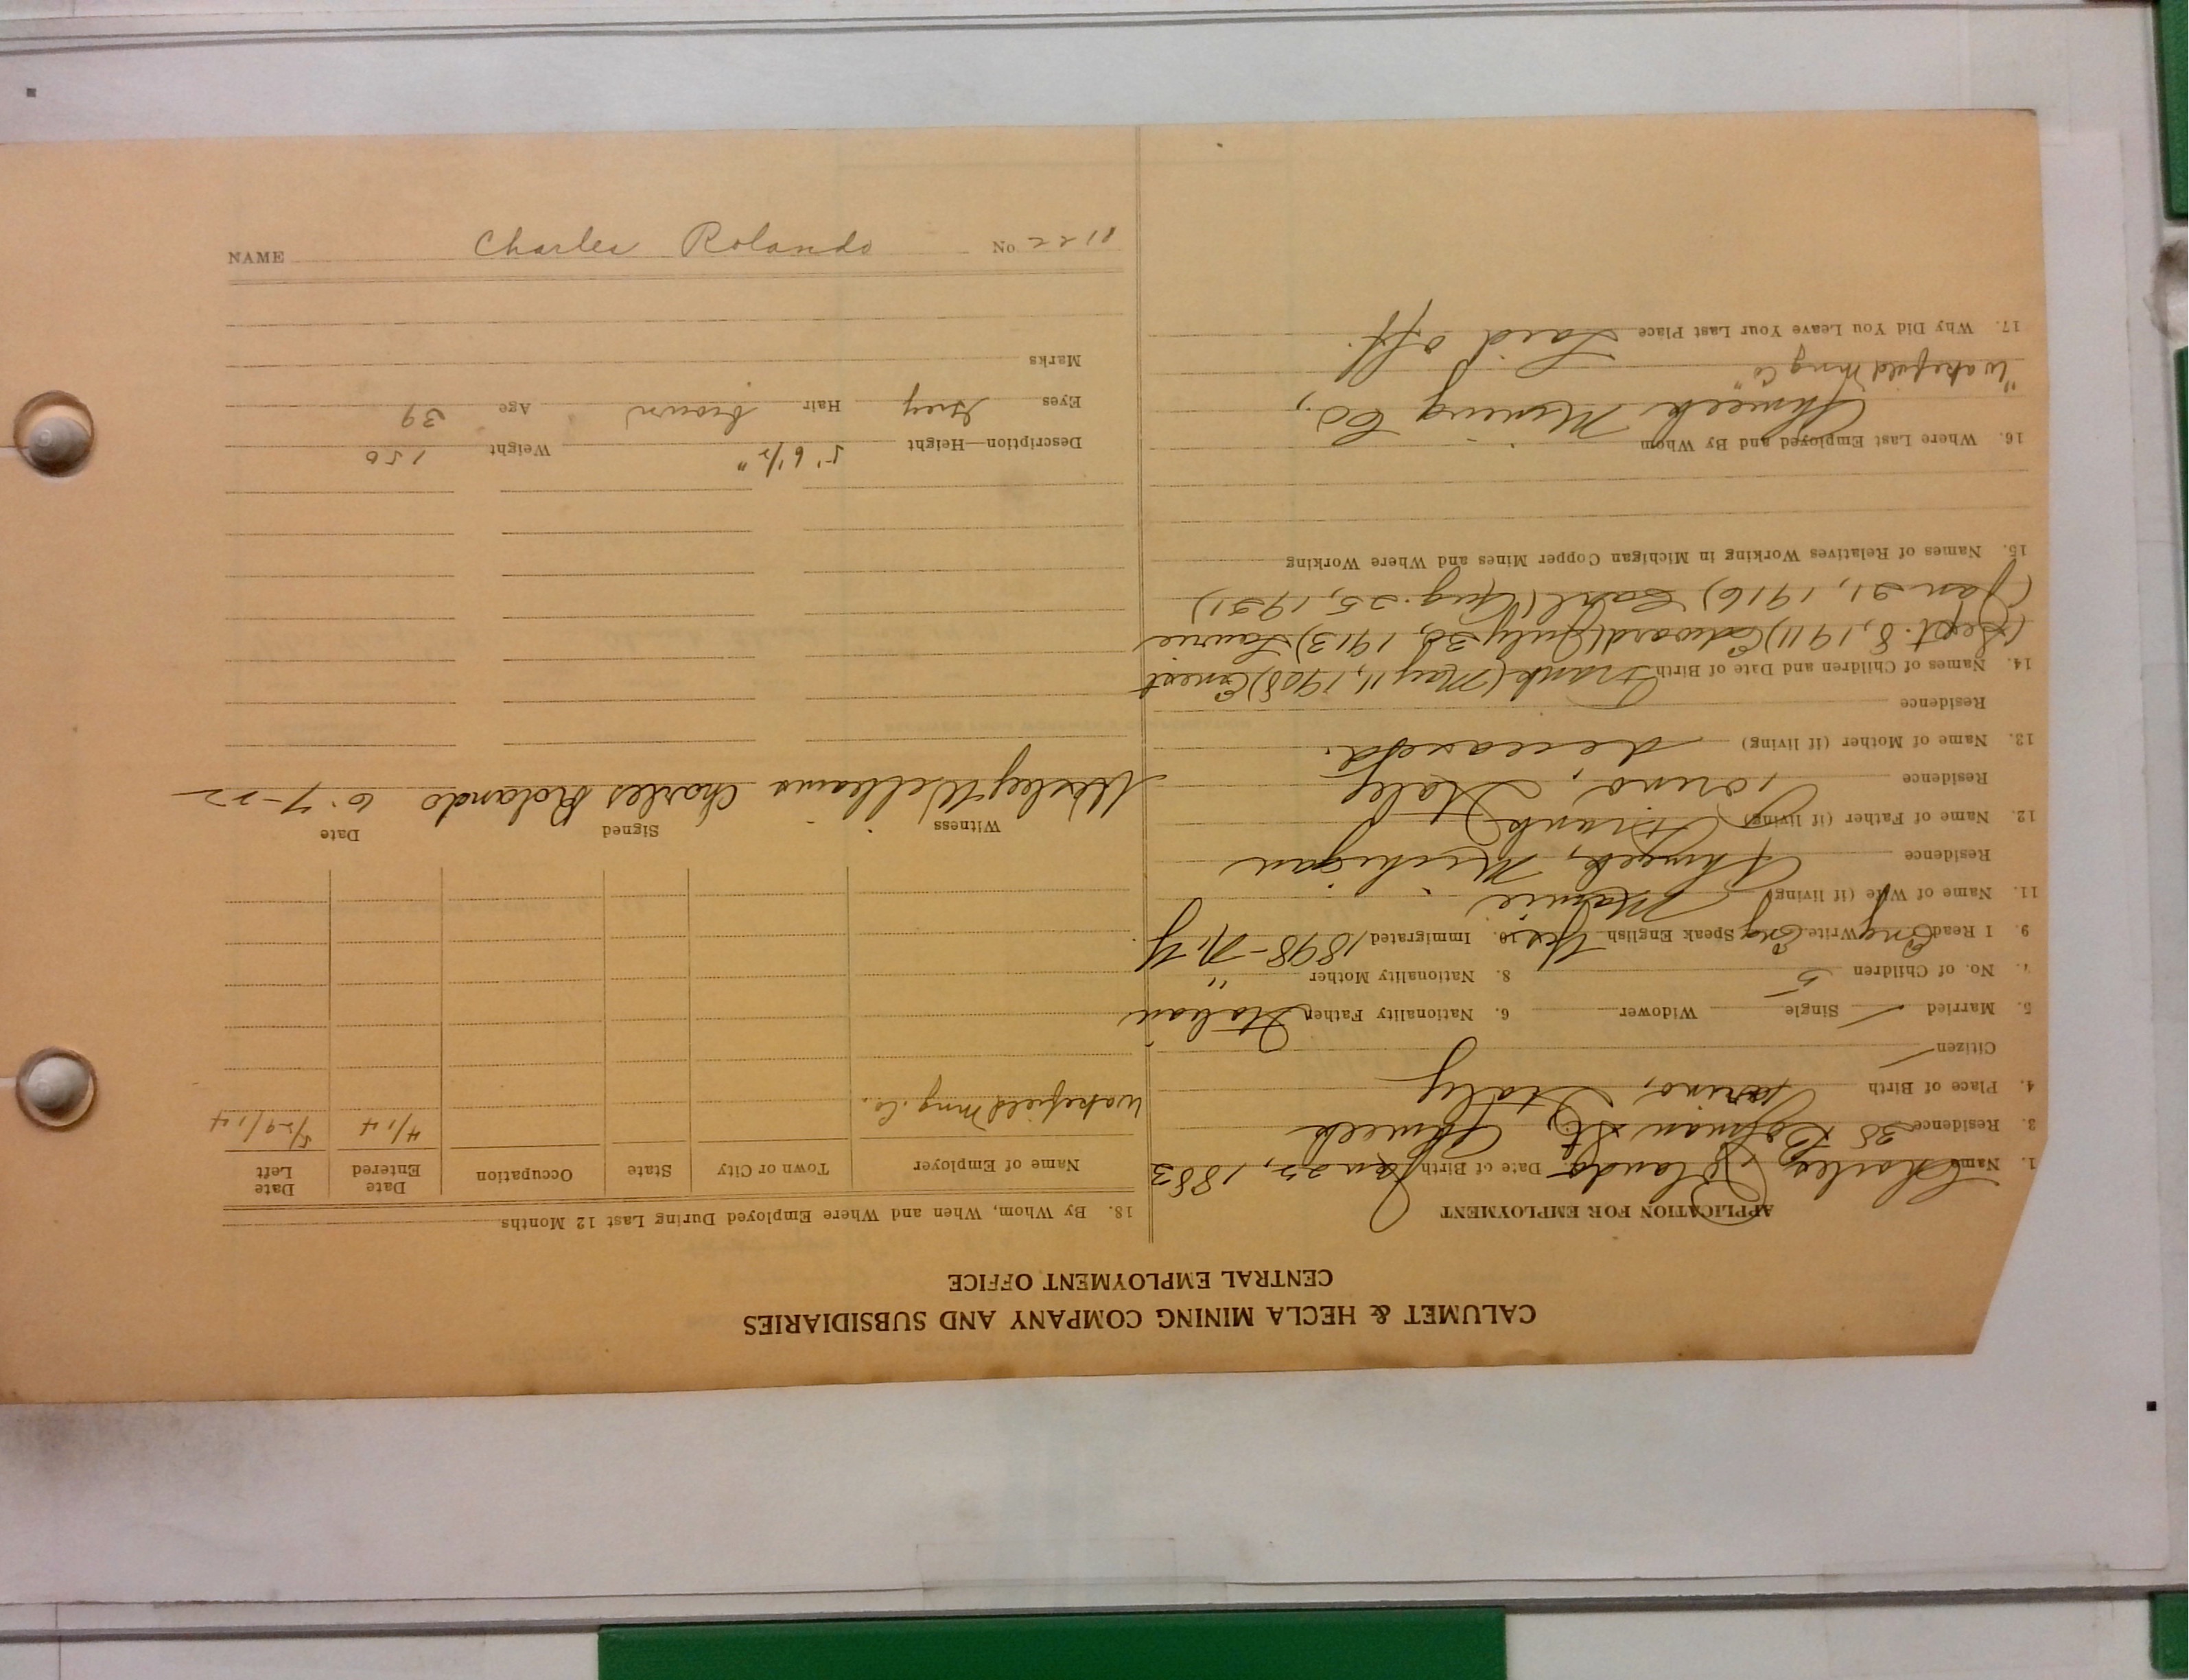 CALUMET & HECLA MINING COMPANY AND SUBSIDIARIES
CENTRAL EMPLOYMENT OFFICE
APPLICATION FOR EMPLOYMENT
1. Name Charles Rolando Date of Birth Jan 22, 1883
3. Residence 38 St, Ahmeek
4. Place of Birth Torino, Italy
Citizen
5. Married Single Widower 6. Nationality Father Italian
7. No. of Children 5 8. Nationality Mother "
9. I Read Eng Write Eng Speak English Yes 10. Immigrated 1898-N.Y
11. Name of Wife (if living) Mamie
Residence Ahmeek, Michigan
12. Name of Father (if living) Frank
Residence Torino, Italy
13. Name of Mother (if living) deceased.
Residence
14. Names of Children and Date of Birth Frank (May 11, 1908) Ernest
(Sept. 8, 1911) Edward (July 30, 1913) Laurie
(Jan 21, 1916) Carl (Aug. 25, 1921)
15. Names of Relatives Working in Michigan Copper Mines and Where Working
16. Where Last Employed and By Whom
Ahmeek Mining Co,
"Wakefield Mng Co"
17. Why Did You Leave Your Last Place Laid off.
18. By Whom, When and Where Employed During Last 12 Months
Name of Employer Town or City State Occupation Date Entered Date Left
Wakefield Mng. Co.
Witness Signed Date
Wesley Williams Charles Rolando 6-7-22
Description—Height 5' 6 1/2" Weight 150
Eyes Grey Hair brown Age 39
Marks
NAME Charles Rolando No